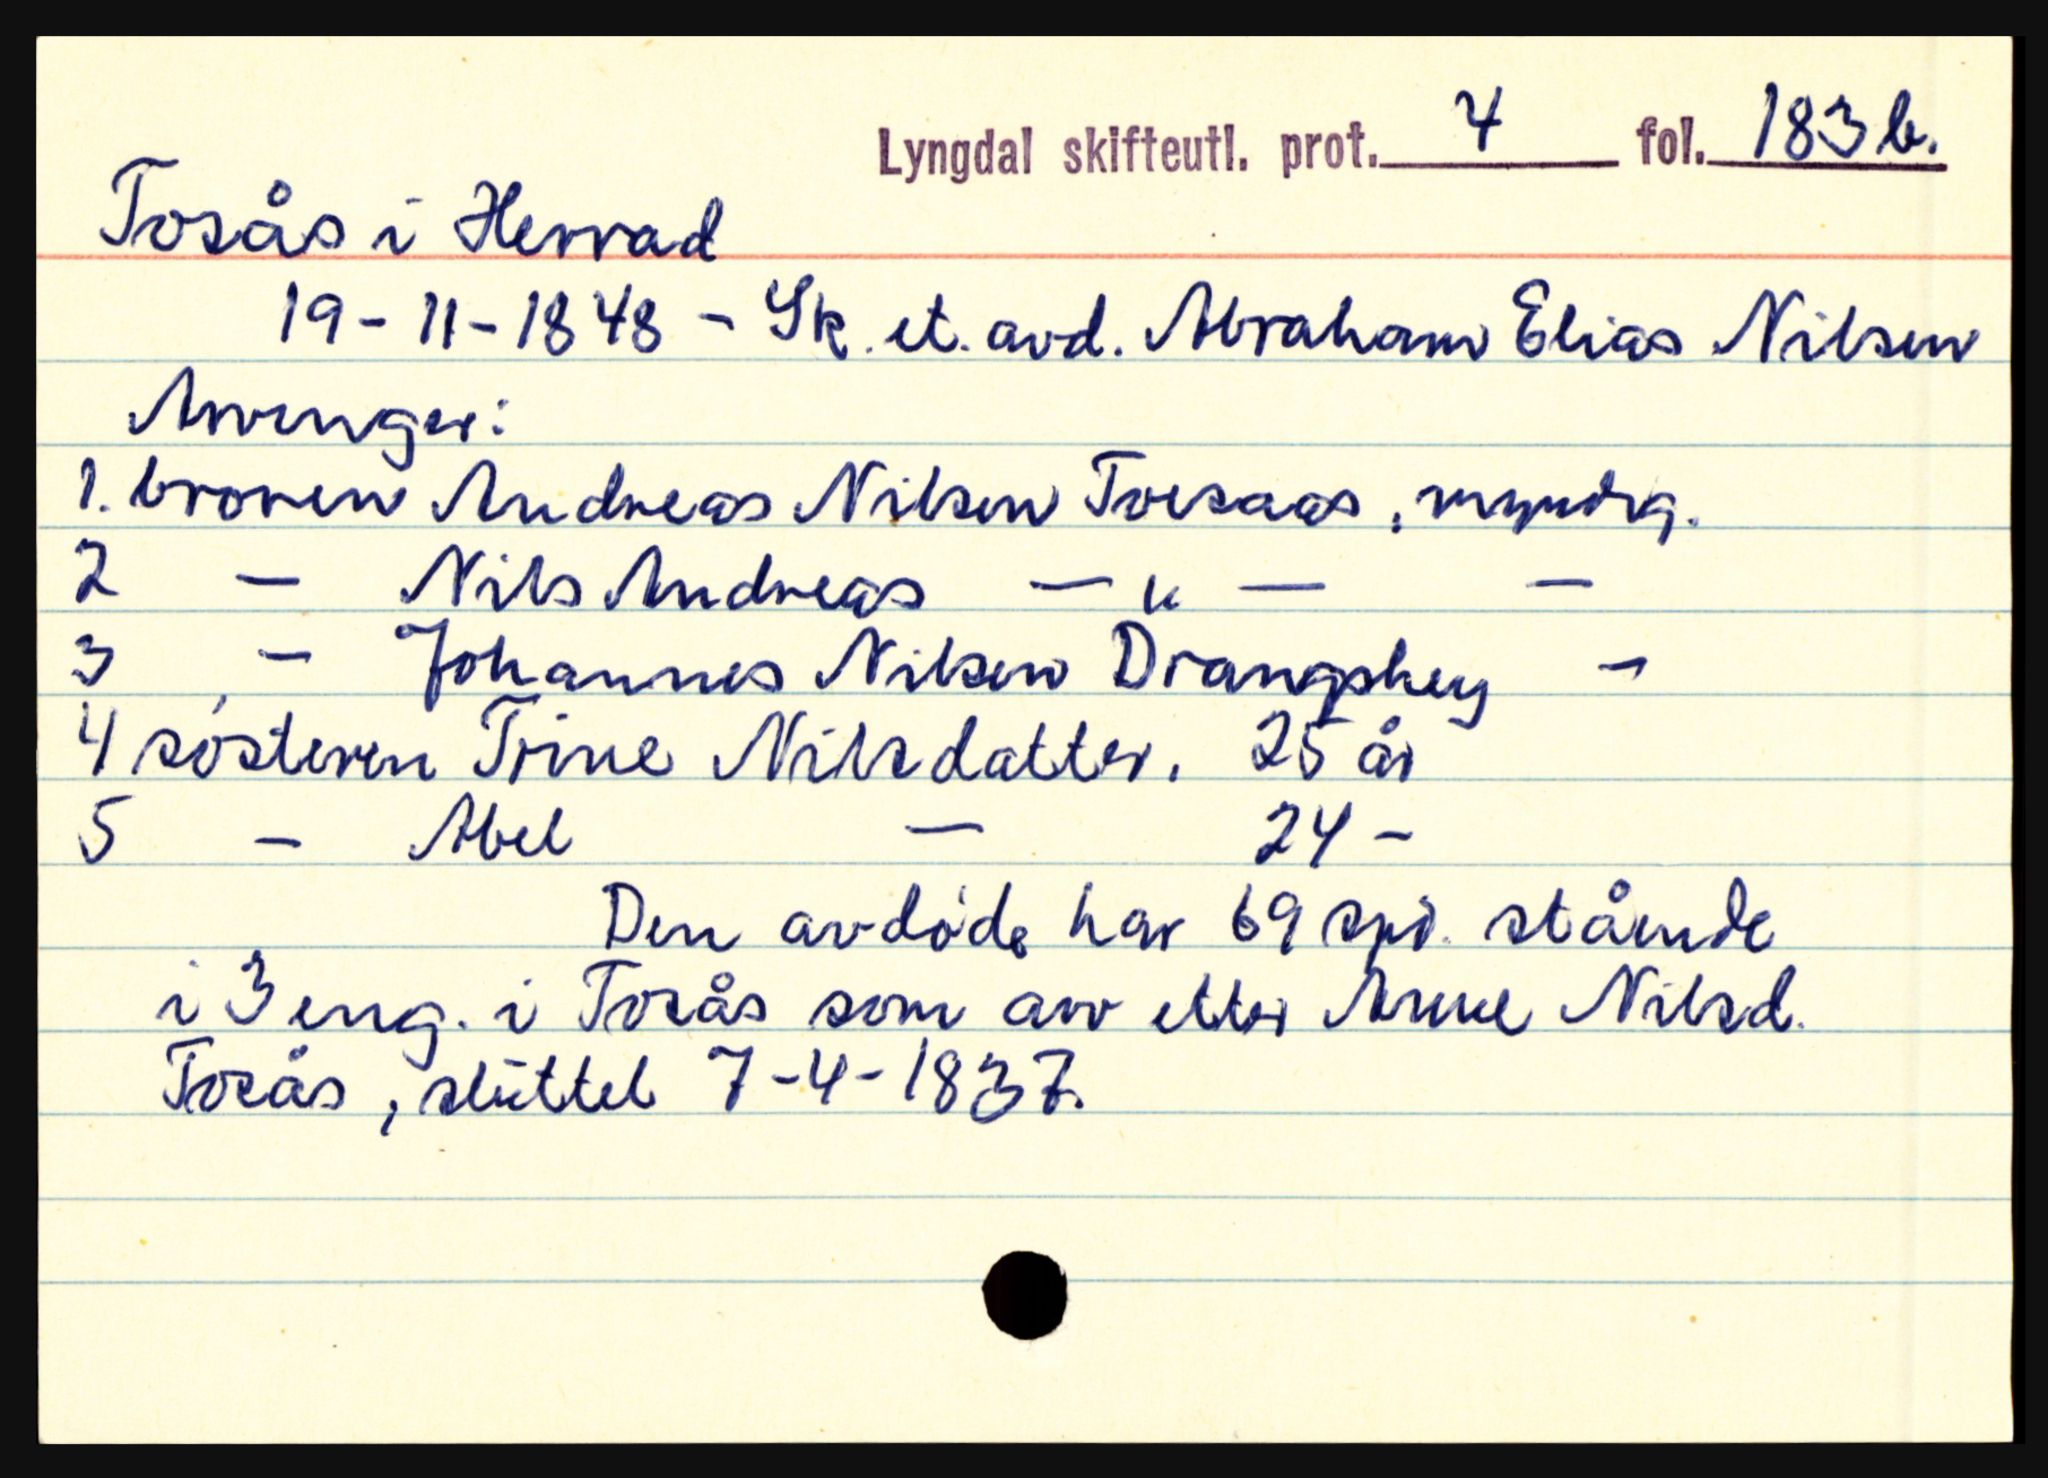 Lyngdal skifteutl. prot. 4 fol. 183 b.
Tosås i Herrad
19-11-1848 - Sk. et. avd. Abraham Elias Nilsen
Arvenger:
1. broren Andreas Nilsen Toesaas, myndig.
2 - Nils Andreas - " - -
3 - Johannes Nilsen Drangshey -
4 søsteren Trine Nilsdatter. 25 år
5 - Abel - 24 -
Den avdøde har 69 spd. stående
i 3 eng. i Tosås som arv etter Anne Nilsd.
Tosås, sluttet 7-4-1837.